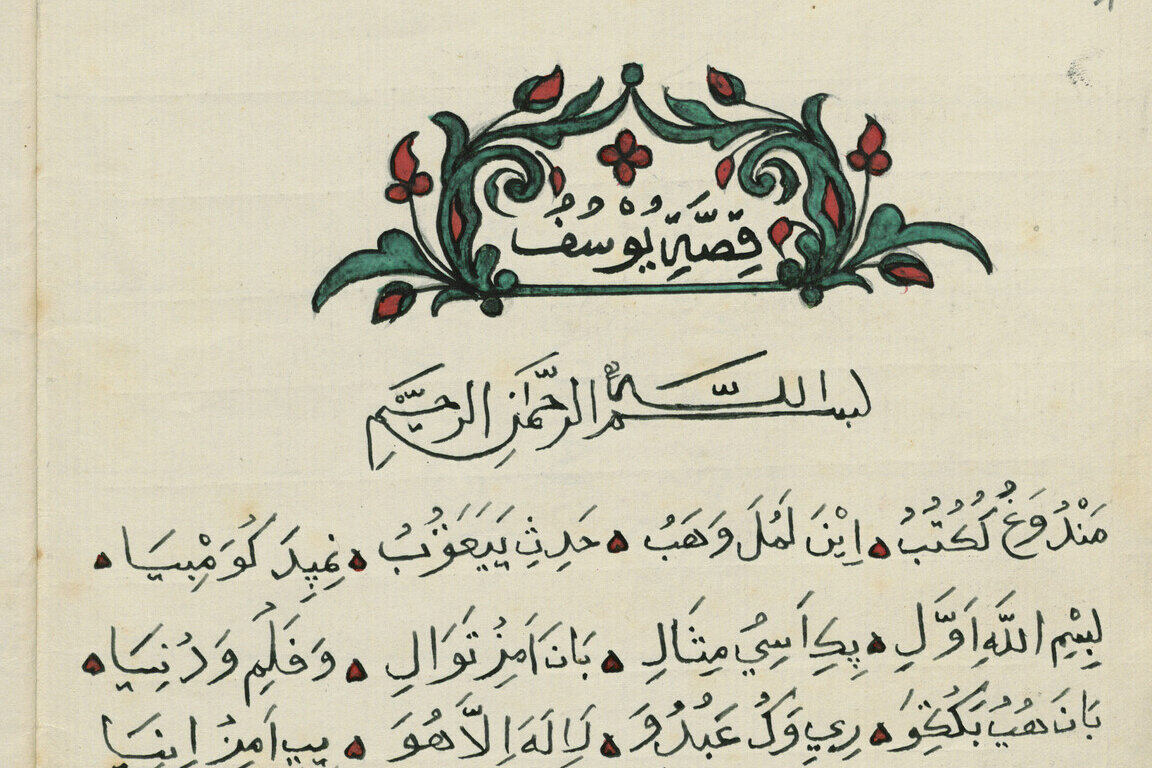 قِصَّةِ يُوْسُفُ
بسم اللّه الرَّحْمٰنِ الرَّحِيْمِ
مَنْدُوَغُ لَكُتُبُ اِيْنَ لَمُلَ وَهَبُ حَدِثِ يَيَعَقُوْبُ نِمِپِدَ كُوَمْبِيَا
بِسْمِ اللَّهِ اَوَّلِ پِكِ اَسِيُ مِثَالِ بَانَ اَمِزُ تَوَالِ وَفَلَمِ وَدُنِيَا
بَانَ هُيُ وَكُ عَبُدُوَ لَا اِلَهَ اِلاَّ هُوَ